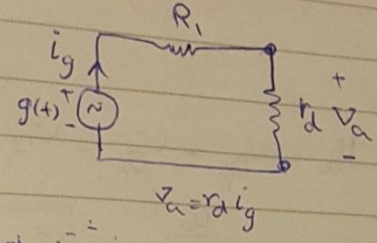 R₁
i_g
g(t) + ~ -
+
r_d v_a
-
v_a = r_d i_g